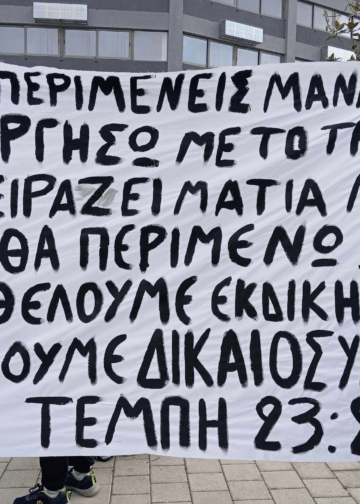 ΠΕΡΙΜΕΝΕΙΣ ΜΑΝ
ΡΓΗΣΩ ΜΕ ΤΟ ΤΡ
ΕΙΡΑΖΕΙ ΜΑΤΙΑ Μ
ΘΑ ΠΕΡΙΜΕΝΩ
ΘΕΛΟΥΜΕ ΕΚΔΙΚΗ
ΟΥΜΕ ΔΙΚΑΙΟΣΥ
ΤΕΜΠΗ 23:2